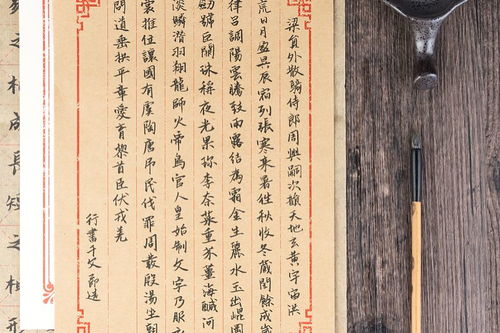 梁員外散騎侍郎周興嗣次韻天地玄黃宇宙洪
荒日月盈昃辰宿列張寒來暑往秋收冬藏閏餘成歲
律呂調陽雲騰致雨露結為霜金生麗水玉出崑岡
劍號巨闕珠稱夜光果珍李柰菜重芥薑海鹹河
淡鱗潛羽翔龍師火帝鳥官人皇始制文字乃服衣
裳推位讓國有虞陶唐弔民伐罪周發殷湯坐朝
問道垂拱平章愛育黎首臣伏戎羌
行書千文節選
之相成長短之相形